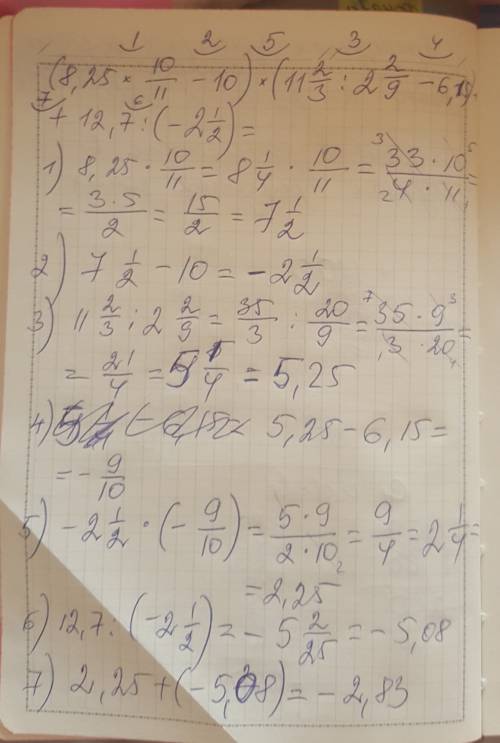 1 2 5 3 4
(8,25 × 10/11 − 10) × (11 2/3 : 2 2/9 − 6,15)
7 6
+ 12,7 : (−2 1/2) =
1) 8,25 · 10/11 = 8 1/4 · 10/11 = 33 · 10 / 4 · 11 =
= 3·5/2 = 15/2 = 7 1/2
2) 7 1/2 − 10 = −2 1/2
3) 11 2/3 : 2 2/9 = 35/3 : 20/9 = 35·9 / 3·20 =
= 21/4 = 5 1/4 = 5,25
4) 5,25 − 6,15 =
= − 9/10
5) −2 1/2 · (− 9/10) = 5·9 / 2·10 = 9/4 = 2 1/4 =
= 2,25
6) 12,7 : (−2 1/2) = − 5 2/25 = − 5,08
7) 2,25 + (−5,08) = − 2,83